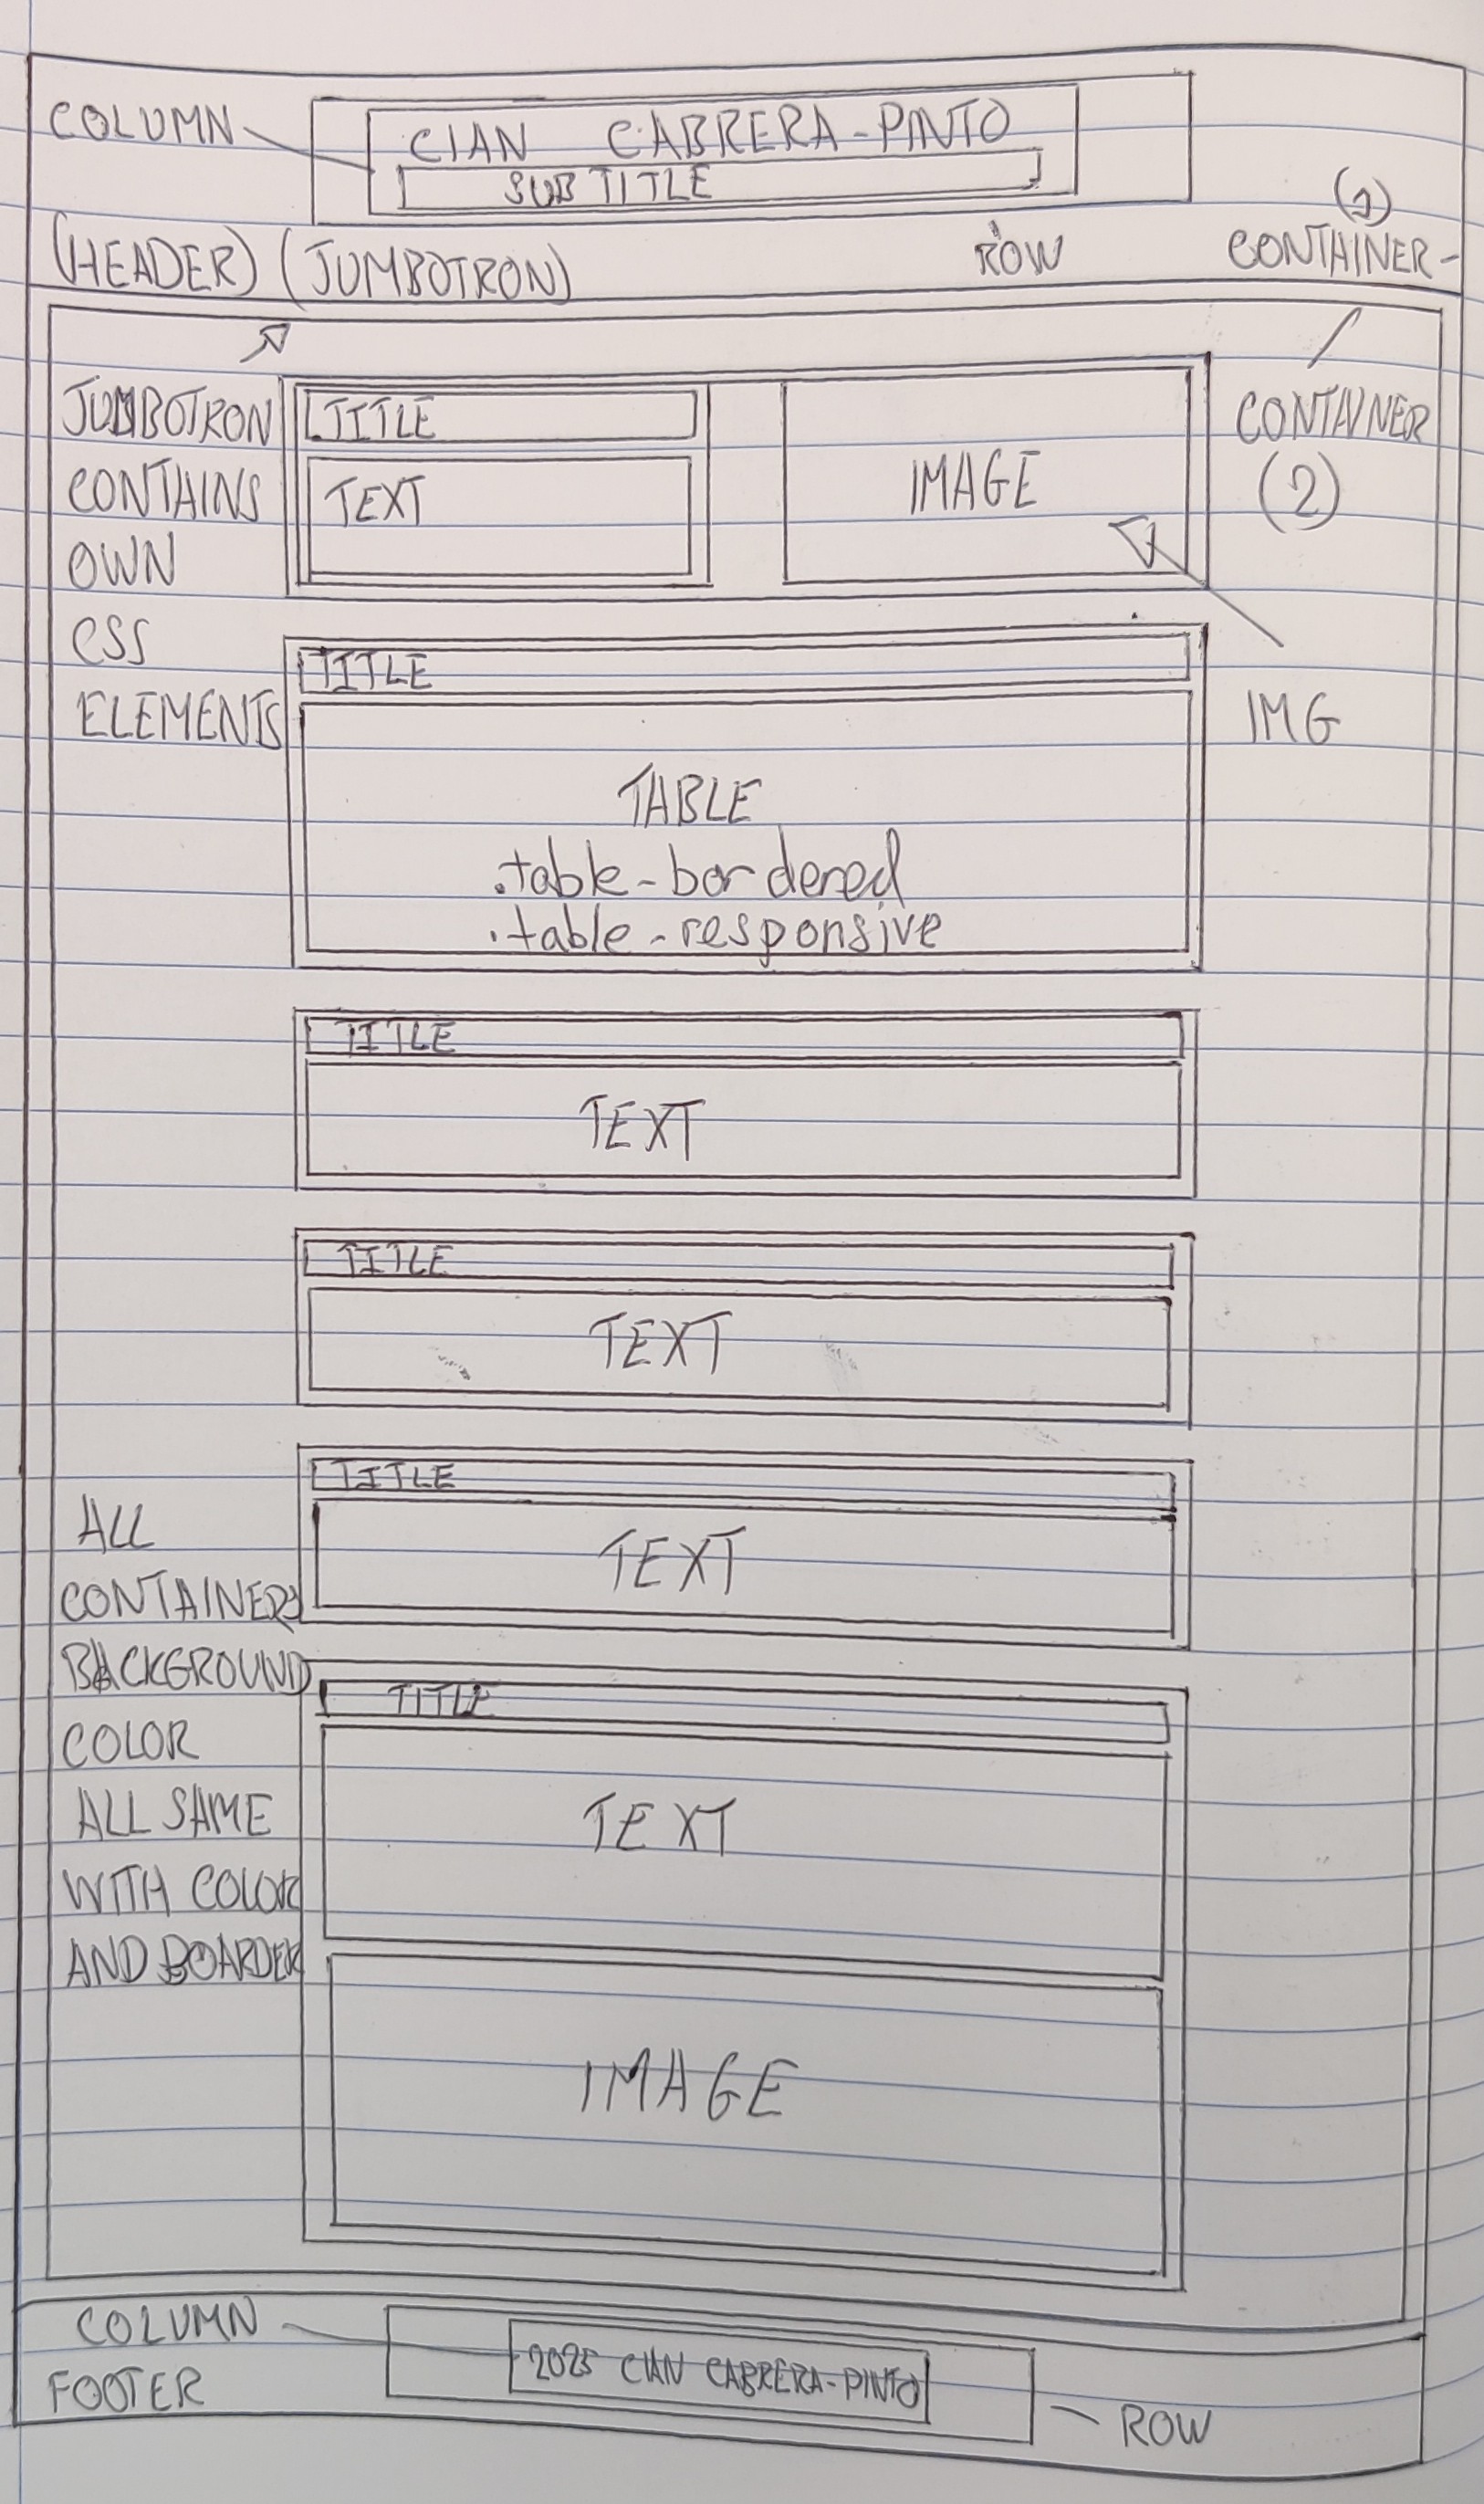 COLUMN
CIAN CABRERA-PINTO
SUBTITLE
(1)
(HEADER) (JUMBOTRON)
ROW
CONTAINER-
JUMBOTRON
CONTAINS
OWN
CSS
ELEMENTS
TITLE
TEXT
IMAGE
CONTAINER
(2)
IMG
TITLE
TABLE
.table-bordered
.table-responsive
TITLE
TEXT
TITLE
TEXT
TITLE
TEXT
ALL
CONTAINERS
BACKGROUND
COLOR
ALL SAME
WITH COLOR
AND BOARDER
TITLE
TEXT
IMAGE
COLUMN
FOOTER
2025 CIAN CABRERA-PINTO
ROW